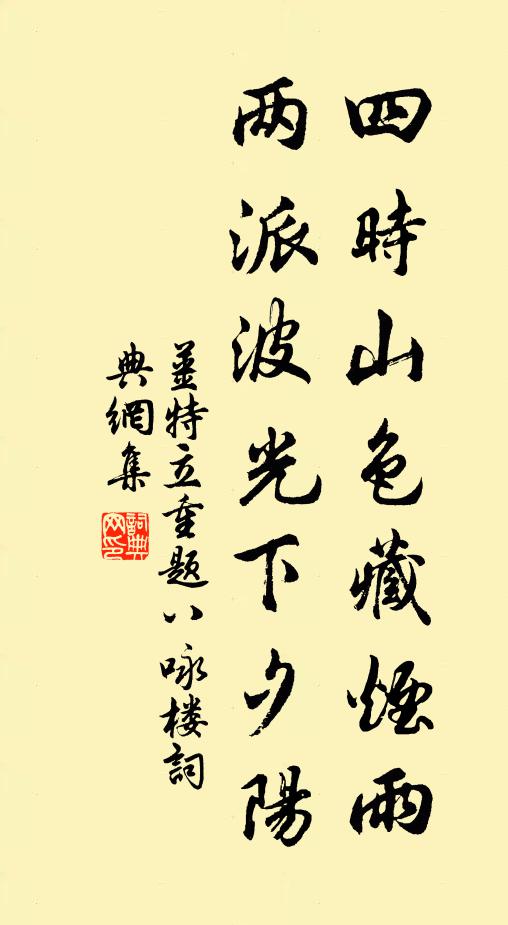 四時山色藏煙雨
两派波光下夕陽
姜特立重题八咏楼詞
典網集
詞典
网印